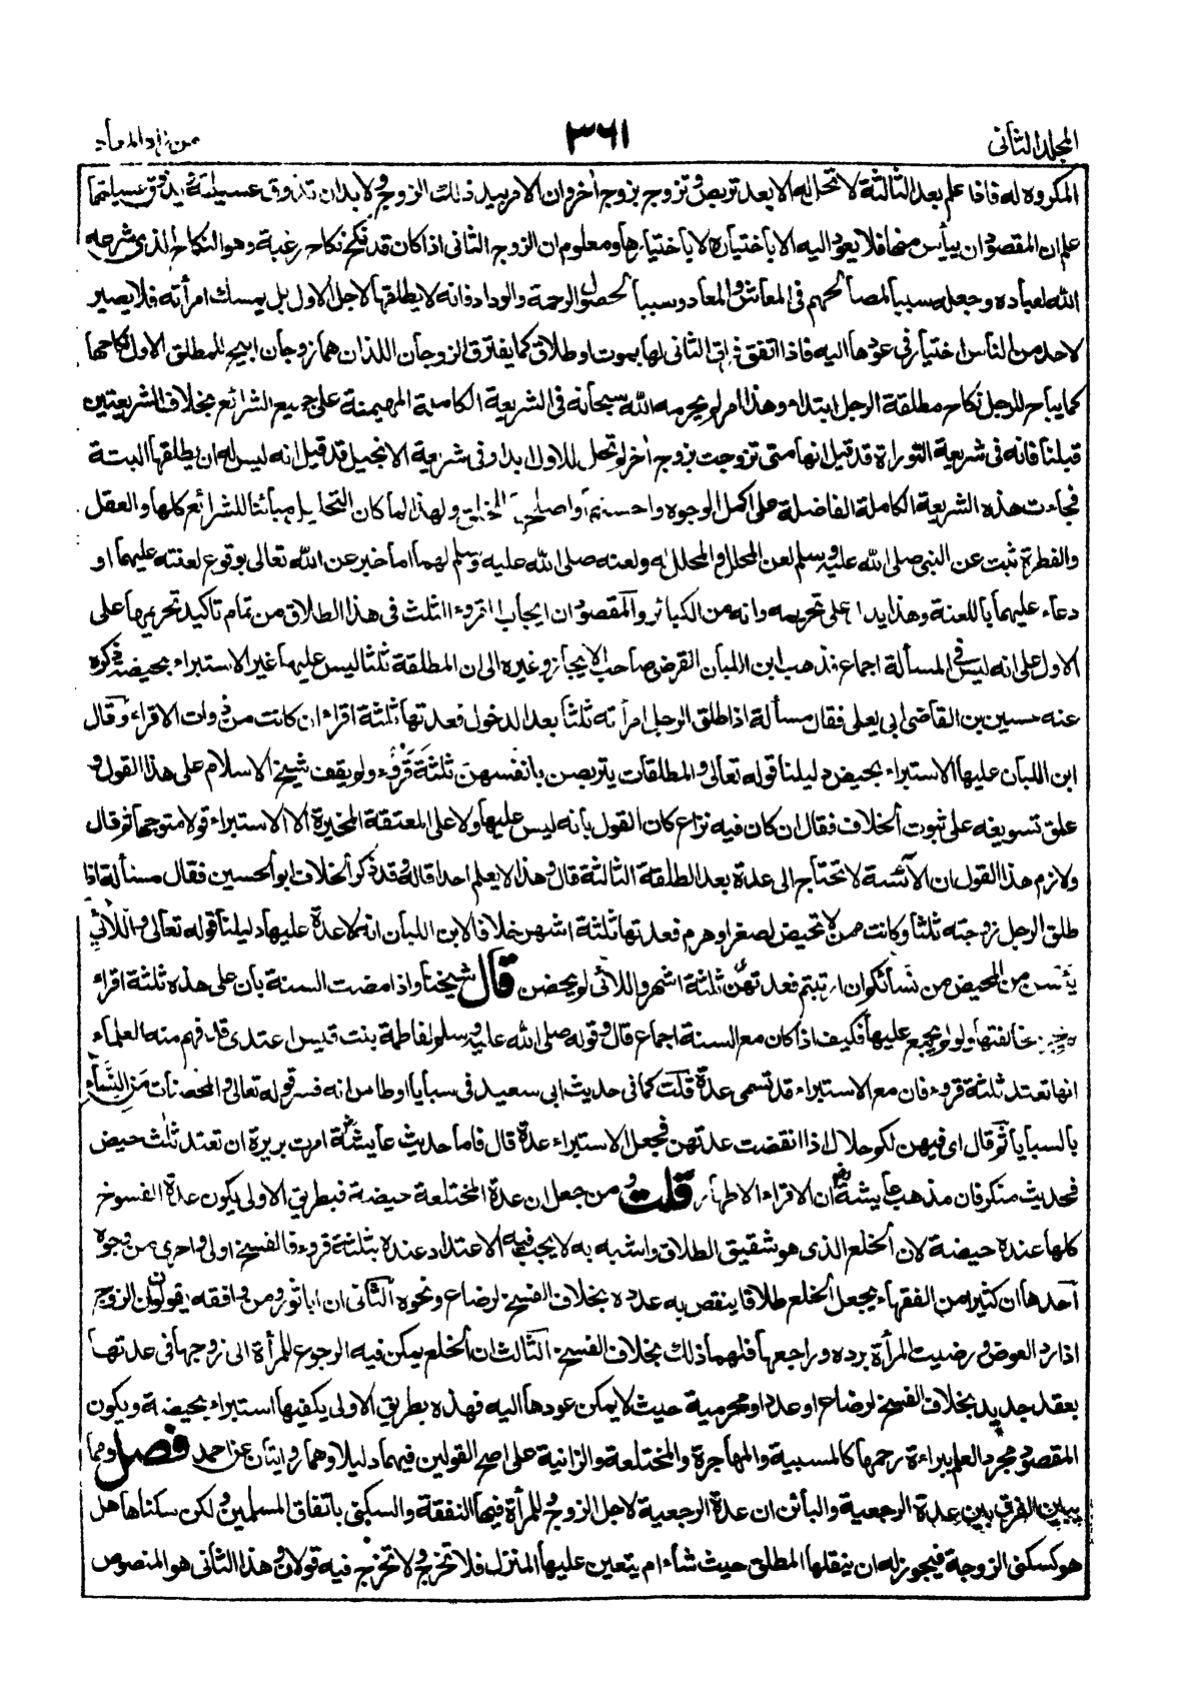 المجلد الثانى
٣٦١
من زاد المعاد
المكروه له فاذا علم بعد الثالثة لا تحل له الا بعد تربص وتزوج بزوج أخر وان الامر بيد ذلك الزوج ولا بد ان تذوق عسيلته ويذوق عسيلتها
علم ان المقصود ان ييأس منها فلا يعود اليه الا باختياره لا باختيارها ومعلوم ان الزوج الثانى اذا كان قد نكح نكاح رغبة وهو النكاح الذى شرحه
الله لعباده وجعله سببا لمصالحهم فى المعاش والمعاد وسببا لحصول الرحمة والوداد فانه لا يطلقها لاجل الاول بل يمسك امرأته فلا يصير
لاحد من الناس اختيار فى عودها اليه فاذا اتفق فراق الثانى لها بموت او طلاق كما يفترق الزوجان اللذان هما زوجان ابيح للمطلق الاول نكاحها
كما يباح للرجل نكاح مطلقة الرجل ابتداء وهذا امر لم يحرمه الله سبحانه فى الشريعة الكاملة المهيمنة على جميع الشرائع بخلاف الشريعتين
قبلنا فانه فى شريعة التوراة قد قيل انها متى تزوجت بزوج أخر لم تحل للاول ابدا وفى شريعة الانجيل قد قيل انه ليس له ان يطلقها البتة
فجاءت هذه الشريعة الكاملة الفاضلة على اكمل الوجوه واحسنها واصلحها للخلق ولهذا لما كان التحليل مبائنا للشرائع كلها والعقل
والفطرة ثبت عن النبى صلى الله عليه وسلم لعن المحلل والمحلل له ولعنه صلى الله عليه وسلم لهما اما خبر عن الله تعالى بوقوع لعنته عليهما او
دعاء عليهما باللعنة وهذا يدل على تحريمه وانه من الكبائر والمقصود ان ايجاب القروء الثلث فى هذا الطلاق من تمام تاكيد تحريمها على
الاول على انه ليس فى المسألة اجماع فذهب ابن اللبان الفرضى صاحب الايجاز وغيره الى ان المطلقة ثلثا ليس عليها غير الاستبراء بحيضة ذكره
عنه حسين بن القاضى ابى يعلى فقال مسألة اذا طلق الرجل امرأته ثلثا بعد الدخول فعدتها ثلثة اقراء ان كانت من ذوات الاقراء وقال
ابن اللبان عليها الاستبراء بحيضة دليلنا قوله تعالى والمطلقات يتربصن بانفسهن ثلثة قروء ولم يقف شيخ الاسلام على هذا القول و
علق تسويغه على ثبوت الخلاف فقال ان كان فيه نزاع كان القول بانه ليس عليها ولا على المعتقة المخيرة الا الاستبراء قولا متوجها ثم قال
ولازم هذا القول ان الآئسة لا تحتاج الى عدة بعد الطلقة الثالثة قال وهذا لا يعلم احدا قاله وقد ذكر الخلاف ابو الحسين فقال مسألة اذا
طلق الرجل زوجته ثلثا وكانت ممن لا تحيض لصغر او هرم فعدتها ثلثة اشهر خلافا لابن اللبان انه لا عدة عليها دليلنا قوله تعالى واللائى
يئسن من المحيض من نسائكم ان ارتبتم فعدتهن ثلثة اشهر واللائى لم يحضن قال شيخنا واذا مضت السنة بان على هذه ثلثة اقراء
لم يجز مخالفتها ولو لم يجمع عليها فكيف اذا كان مع السنة اجماع قال وقوله صلى الله عليه وسلم لفاطمة بنت قيس اعتدى قد فهم منه العلماء
انها تعتد ثلثة قروء فان مع الاستبراء قد تسمى عدة قلت كما فى حديث ابى سعيد فى سبايا اوطاس انه فسر قوله تعالى والمحصنات من النساء
بالسبايا ثم قال اى فهن لكم حلال اذا انقضت عدتهن فجعل الاستبراء عدة قال فاما حديث عايشة امرت بريرة ان تعتد ثلث حيض
فحديث منكر فان مذهب عايشة ان الاقراء الاطهار قلت ومن جعل ان عدة المختلعة حيضة فبطريق الاولى يكون عدة الفسوخ
كلها عنده حيضة لان الخلع الذى هو شقيق الطلاق واشبه به لا يجب فيه الاعتداد عنده بثلثة قروء فالفسخ اولى واحرى من وجوه
احدها ان كثيرا من الفقهاء يجعل الخلع طلاقا ينقص به عدده بخلاف الفسخ لرضاع ونحوه الثانى ان ابا ثور ومن وافقه يقولون ان الزوج
اذا رد العوض ورضيت المرأة برده وراجعها فلهما ذلك بخلاف الفسخ الثالث ان الخلع يمكن فيه الرجوع للمرأة الى زوجها فى عدتها
بعقد جديد بخلاف الفسخ لرضاع او عدد او محرمية حيث لا يمكن عودها اليه فهذه بطريق الاولى يكفيها استبراء بحيضة ويكون
المقصود مجرد العلم ببراءة رحمها كالمسبية والمهاجرة والمختلعة والزانية على اصح القولين فيهما دليلا وهما روايتان عن احمد فصل ومما
يبين الفرق بين عدة الرجعية والبائن ان عدة الرجعية لاجل الزوج وللمرأة فيها النفقة والسكنى باتفاق المسلمين ولكن سكناها هل
هو كسكنى الزوجة فيجوز له ان ينقلها المطلق حيث شاء ام يتعين عليها المنزل فلا تخرج ولا تخرج فيه قولان وهذا الثانى هو المنصوص